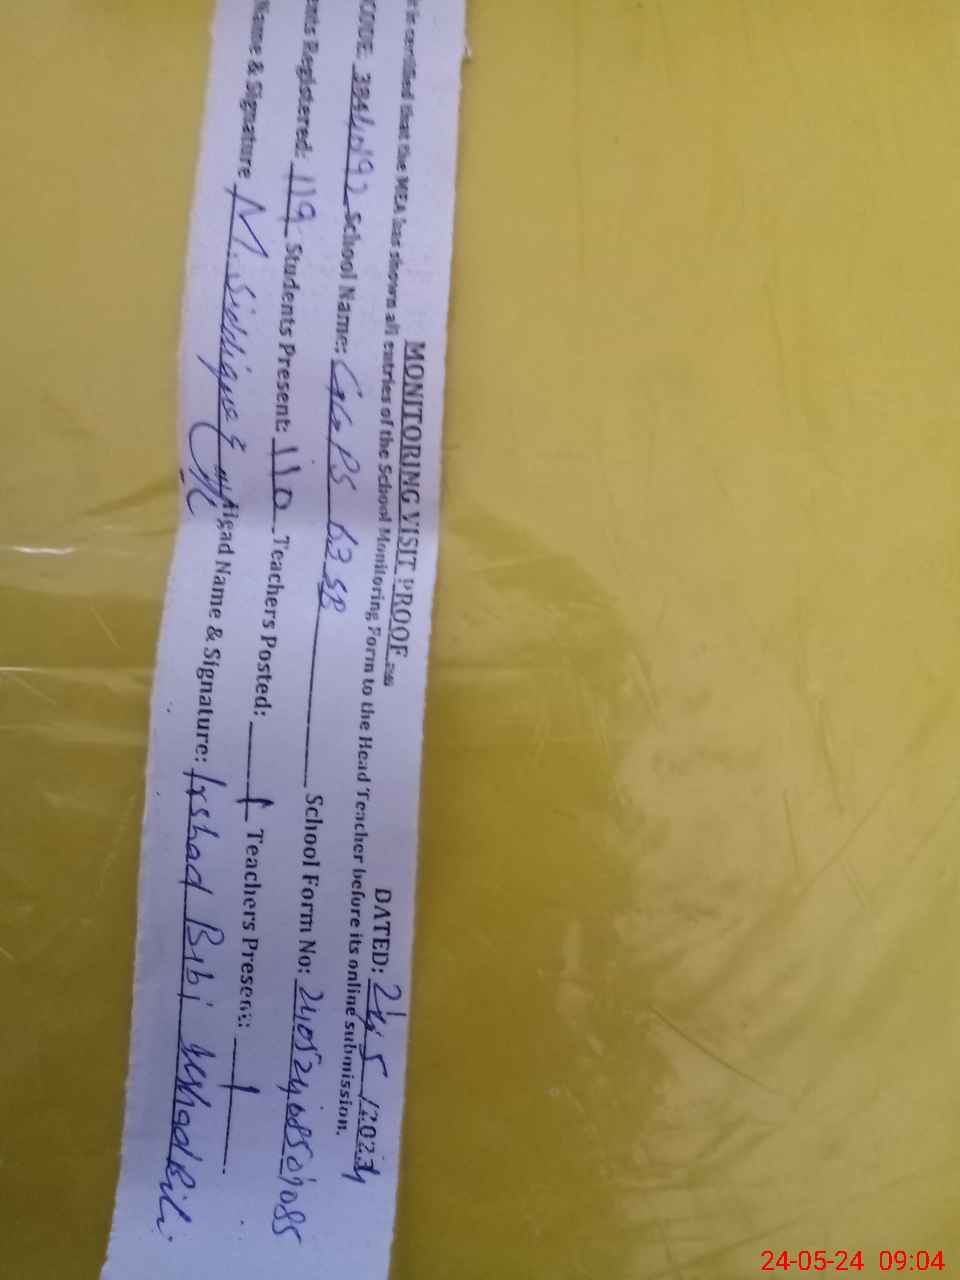 MONITORING VISIT PROOF
DATED: 24/5/2024
is certified that the MEA has shown all entries of the School Monitoring Form to the Head Teacher before its online submission.
School Name: GGPS 63 SB School Form No: 24052408501085
Registered: 119 Students Present: 110 Teachers Posted: 1 Teachers Present: 1
Name & Signature M. Siddique Name & Signature: Irshad Bibi Irshad Bibi
24-05-24 09:04